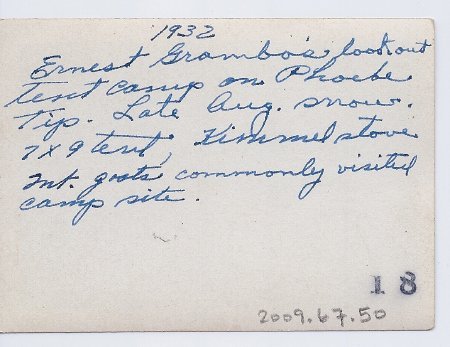 1932
Ernest Grambo's lookout
tent camp on Phoebe
Tip. Late Aug. snow.
7x9 tent, Kimmel stove
Mt. goats commonly visited
camp site.
18
2009.67.50